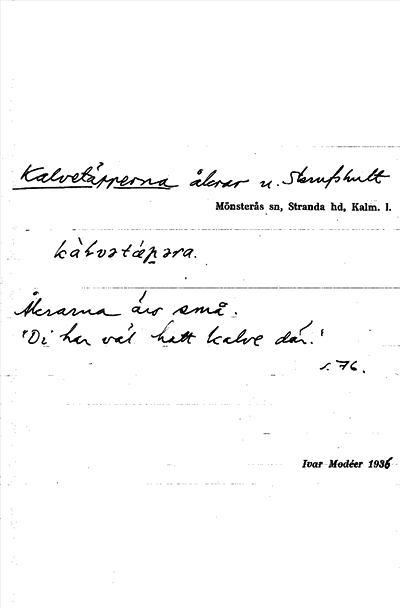 Kalvetäpperna åkrar u. Skrufshult
Mönsterås sn, Stranda hd, Kalm. l.
kàlvətæp̱əra.
Åkrarna äro små.
"Di har väl hatt kalve där."
s. 76.
Ivar Modéer 1936